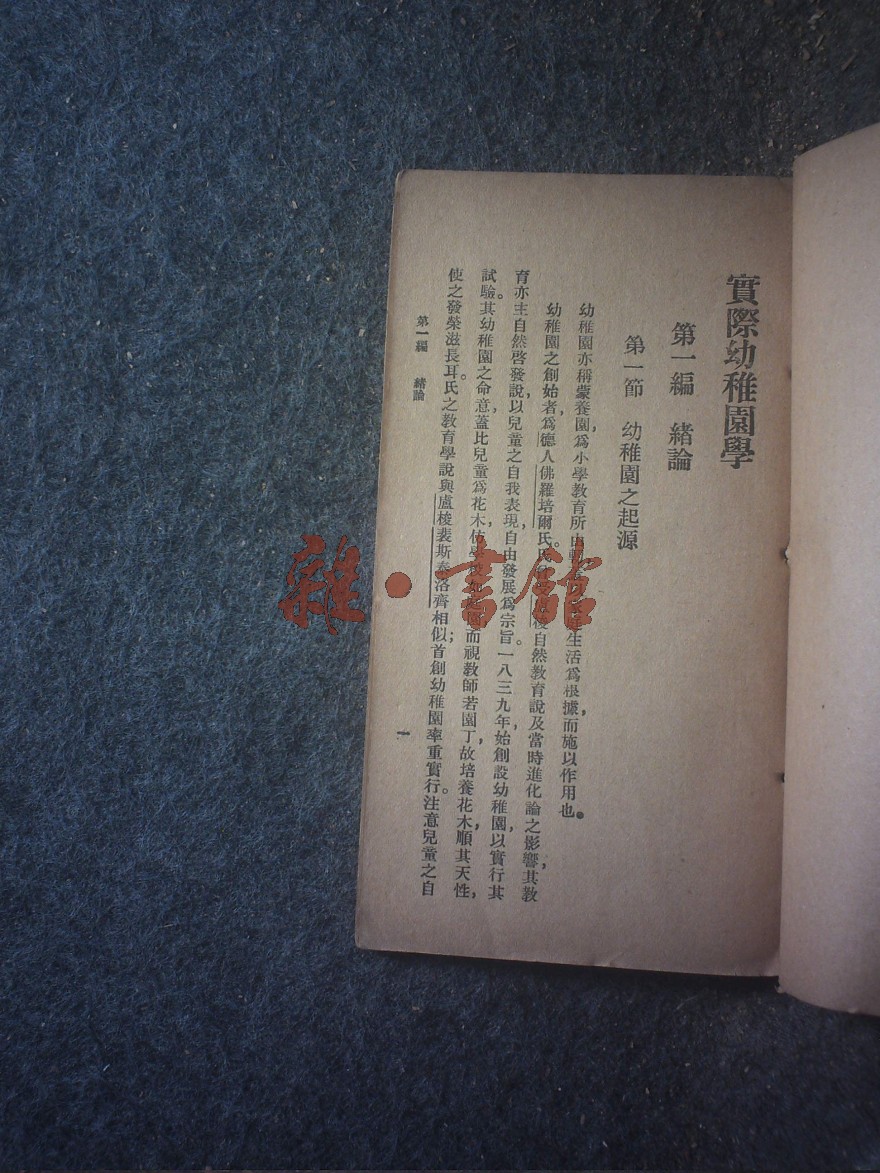 實際幼稚園學
第一編　緒論
第一節　幼稚園之起源
幼稚園亦稱蒙養園，爲小學教育所由生活爲根據，而施以作用也。
幼稚園之創始者，爲德人佛羅培爾氏。氏自然教育說及當時進化論之影響，其教
育亦主自然啓發說，以兒童之自我表現，自由發展爲宗旨。一八三九年，始創設幼稚園，以實行其
試驗。其幼稚園之命意，蓋比兒童爲花木，而視教師若園丁，故培養花木，順其天性，
使之發榮滋長耳。氏之教育學說與盧梭裴斯泰洛齊相似；首創幼稚園，率重實行。注意兒童之自
第一編　緒論
一
雜·書館